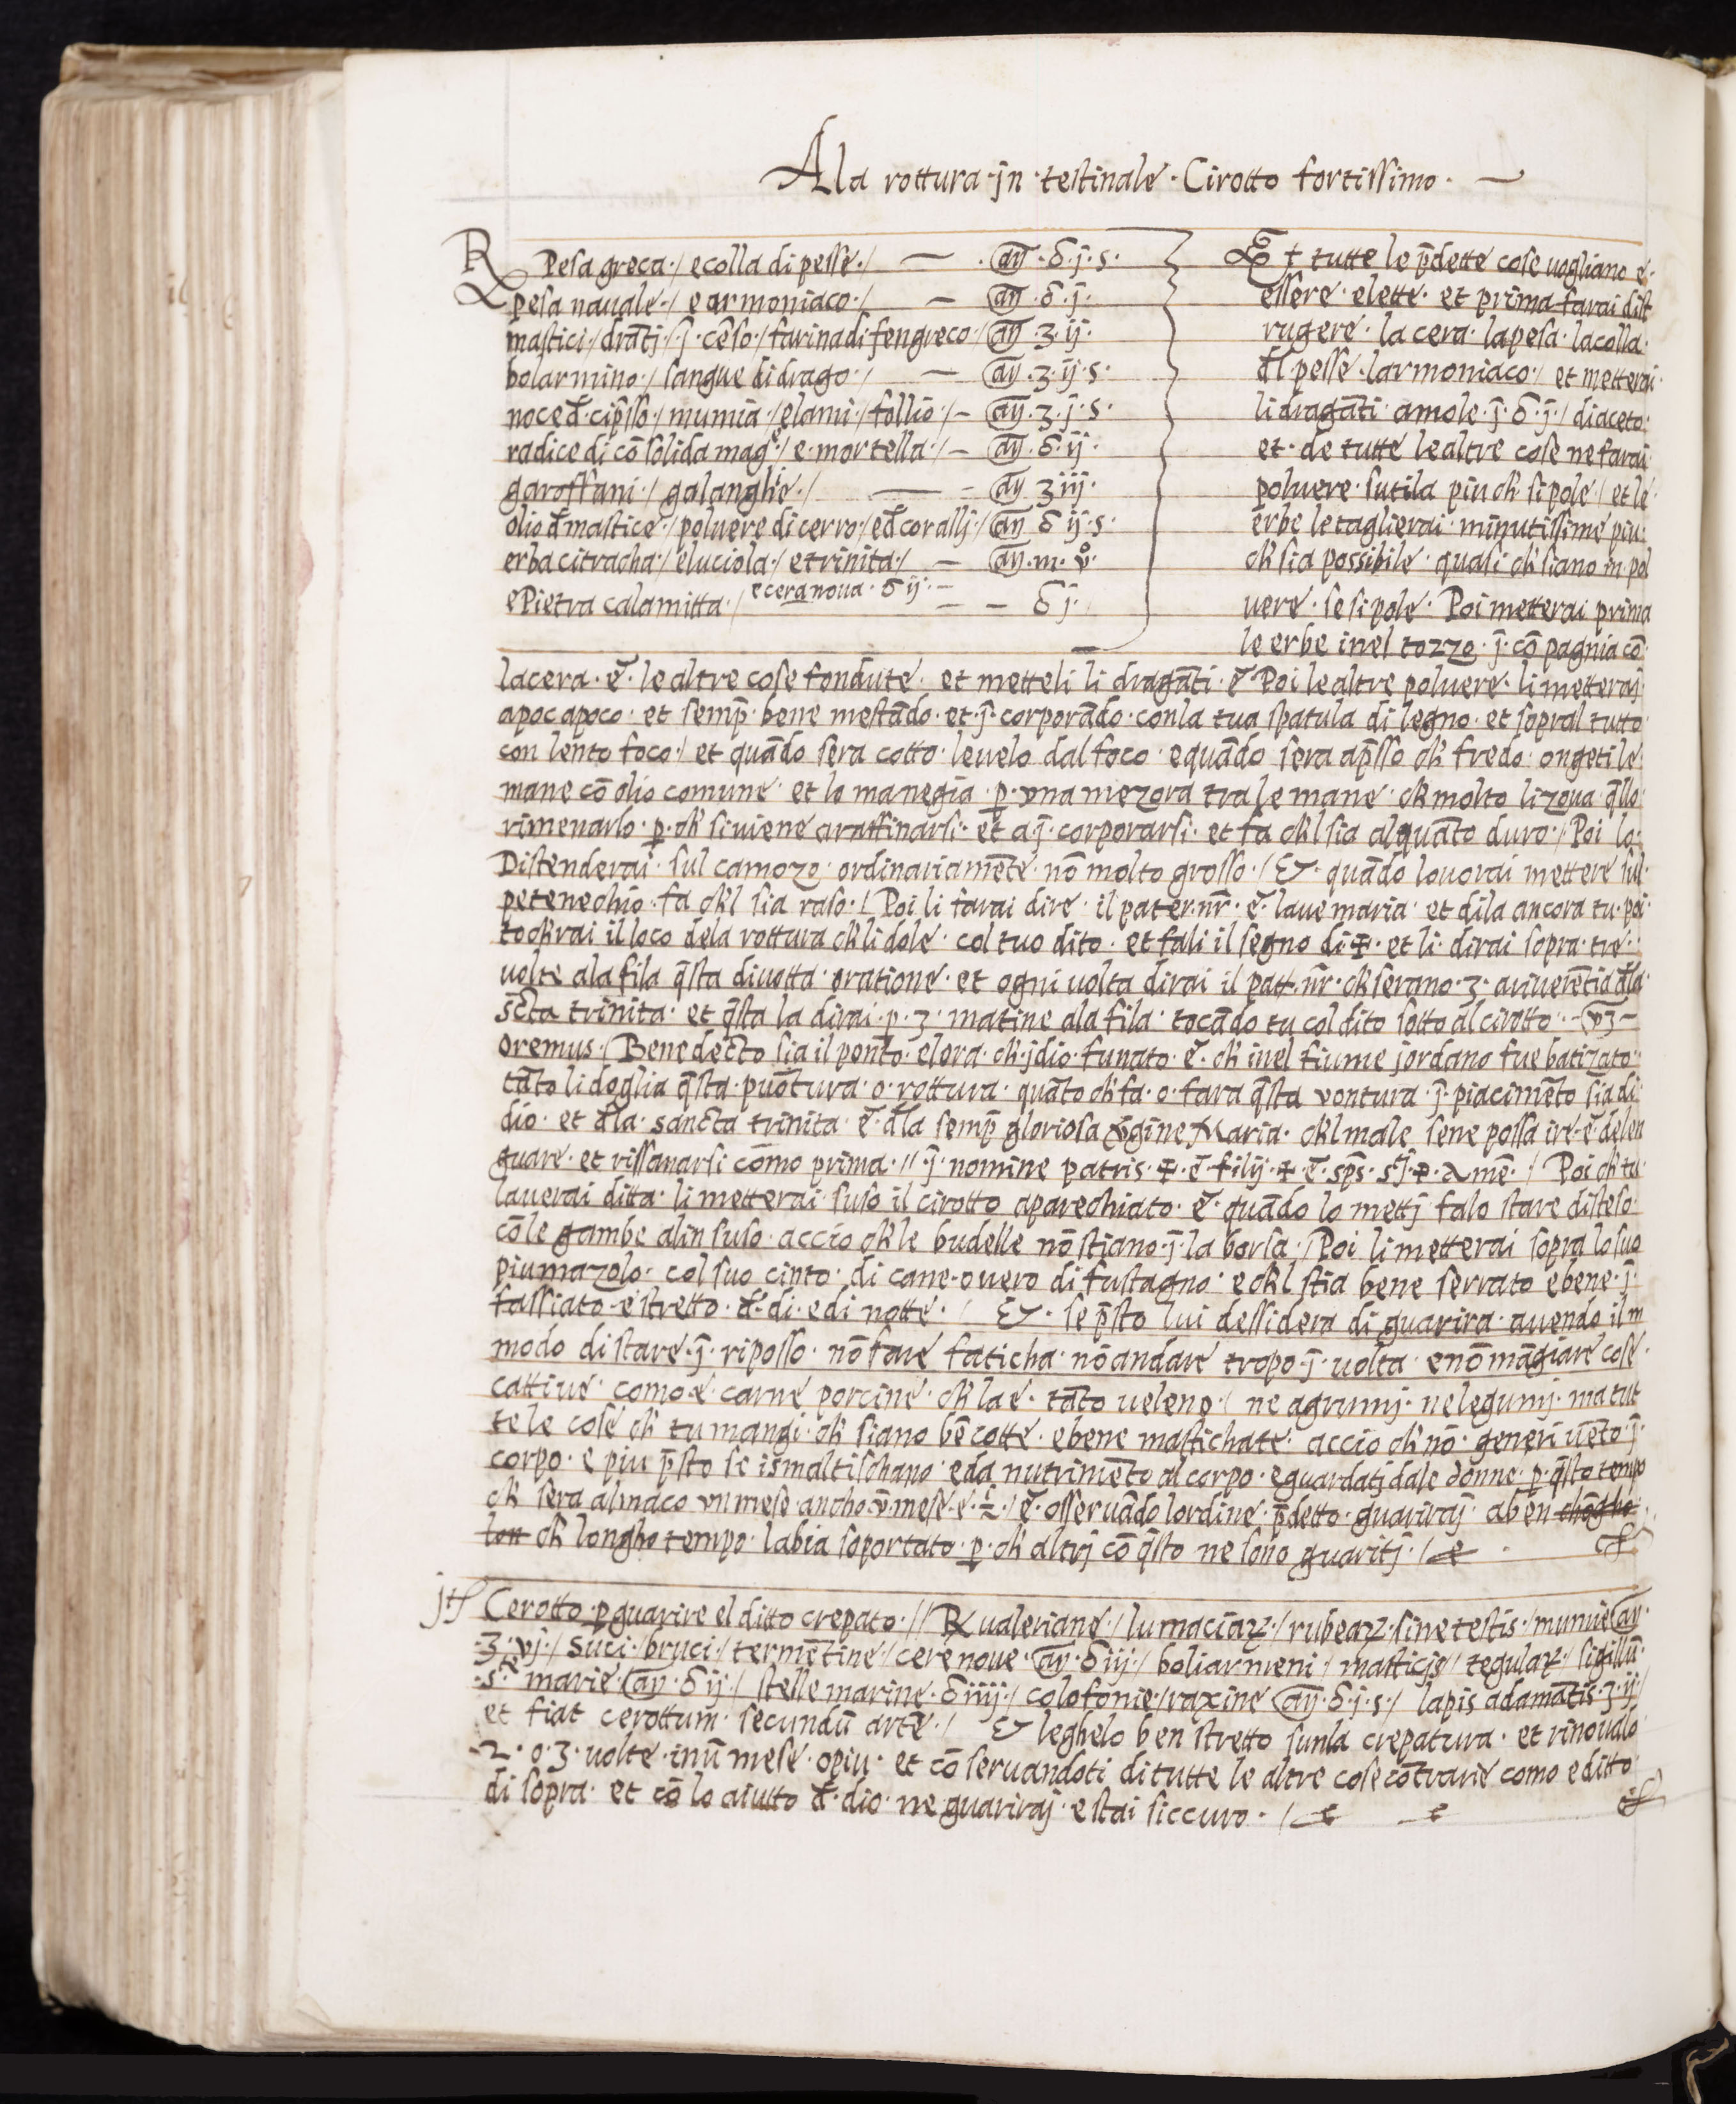 Ala rottura · jn · testinale · Cirotto fortissimo · —
R Pesa greca · / e colla di pesse · / — · aņ · δ · j · s ·
pesa nauale · / e armoniaco · / — aņ · δ · j ·
mastici · / drātj · / · j̄ · cēso · / farina di fengreco · / aņ · ʒ · ij ·
bolarmino · / sangue di drago · / — aņ · ʒ · ij · s ·
noce đ cip̄sso · / mumia · / elami · / follio · / — aņ · ʒ · j · s ·
radice di cōsolida magᵉ · / e · mortella · / — aņ · δ · ij ·
garoffani · / galanghe · / — aņ ʒ iij ·
olio đ mastice · / poluere di cerro · / e đ corallj · / aņ δ ij · s ·
erba citracha · / eluciola · / e trinita · / — aņ · m · v̊ ·
e Pietra calamitta · / e cera noua · δ ij · — — δ j ·
Et tutte le p̄dette cose uogliano e ·
essere · elette · et prima farai dist
rugere · la cera · la pesa · la colla ·
đl pesse · larmoniaco · / et metterai ·
li dragāti · amole · j̄ · δ · j · / di aceto ·
et · de tutte le altre cose ne farai ·
poluere · sutila piu ch̄ si pole · / et le ·
erbe le taglierai · minutissime piu ·
ch̄ sia possibile · quasi ch̄ siano in pol
uere · se si pole · Poi metterai prima
le erbe inel tozzo · j̄ · cōpagnia cō
la cera · ē · le altre cose fondute · et metteli li dragāti · ē Poi le altre poluere · li metteraj ·
apoc apoco · et semp̄ · bene mestādo · et · j̄ · corporādo · con la tua spatula di legno · et sopral tutto
con lento foco · / et quādo sera cotto · leuelo dal foco · e quādo sera ap̄sso ch̄ fredo · ongeti le ·
mane cō olio comune · et lo manegia · p̱ · vna mezora tra le mane · ch̄ molto li zoua q̄llo
rimenarlo · p̱ · ch̄ si uiene araffinarsi · et a j̄ · corporarsi · et fa ch̄l sia alquāto duro · / Poi lo ·
Distenderai · sul camozo · ordinariamēte · nō molto grosso · / Et · quādo lo uorai mettere sul ·
petenechio · fa ch̄l sia raso · / Poi li farai dire · il pater · nr̄ · ē · laue maria · et dila ancora tu · poi ·
toch̄rai il loco dela rottura ch̄ li dole · col tuo dito · et fali il segno di · ✠ · et li · dirai sopra · tre ·
uolte ala fila q̄sta diuotta · oratione · et ogni uolta dirai il patt · nr̄ · ch̄ serano · 3 · a riuerētia đla
sc̄ta trinita · et q̄sta la dirai · p · 3 · matine ala fila · tocādo tu col dito sotto al cirotto ·
oremus · / Benedecto sia il ponto · elora · ch̄ · jdio · fu nato · ē · ch̄ inel fiume jordano fue batizato ·
tāto li doglia q̄sta · puōtura · o · rottura · quāto ch̄ fa · o · fara q̄sta vontura · j̄ · piacimēto sia di
dio · et đla · sancta trinita · ē · đla semp̄ gloriosa v̄gine Maria · ch̄l male sene possa ire · ē · delen
guare · et rissanarsi cōmo prima · // · j̄ · nomine patris · ✠ · ē · filij · ✠ · ē · sp̄s · st̄j · ✠ · amē · / Poi ch̄ tu ·
lauerai ditta · li metterai suso il cirotto aparechiato · ē · quādo lo mettj falo stare disteso ·
cō le gambe alin suso · accio ch̄ le budelle nō stiano · j̄ · la borsa · / Poi li metterai sopra lo suo
piumazolo · col suo cinto · di cane · ouero di fustagno · e ch̄l stia bene serrato e bene · j̄ ·
fassiato · e stretto · đ · di · e di notte · / Et · se p̄sto lui dessidera di guarira · auendo il m
modo di stare · j̄ · riposso · nō fare faticha · nō andare tropo · j̄ · uolta · e nō māgiare cose ·
cattiue · como · e · carne porcine · ch̄ la e · tāto ueleno · / ne agrumj · ne legumj · ma tut
te le cose ch̄ tu mangi · ch̄ siano bē cotte · e bene mastichate · accio ch̄ nō · generi uēto · j̄ ·
corpo · e piu p̄sto se ismaltischano · e da nutrimēto al corpo · e guardatj dale donne · p · q̄sto tempo
ch̄ sera almāco vn mese · ancho v̄ mese · e · ½ · / ē · osseruādo lordine · p̄detto · guariraj · aben
ch̄ longho tempo · labia soportato · p̱ · ch̄ altrj cō q̄sto ne sono guaritj · /
jtʃ Cerotto · p̱ guarire el ditto crepato · // R ualeriane · / lumaciaꝝ · / rubeaꝝ · sine testis · / mumie aņ ·
· ʒ · vj · / suci · / bruci · / termētine · / cere noue · aņ · δ iij · / boliarmeni · / masticis · / tegulaꝝ · / sigillū ·
· sᵗᵉ marie · aņ · δ ij · / stelle marine · δ iiij · / colofonie · / raxine aņ · δ · j · s · / lapis adamātis · ʒ · ij · /
et fiat cerottum · secundū artē · / Et leghelo ben stretto sunla crepatura · et rinoualo
· 2 · o · 3 · uolte · inū mese · opiu · et cōseruandoti di tutte le altre cose cōtrarie como e ditto
di sopra · et cō lo aiutto đ · dio · ne guariraj · e stai siccuro · /